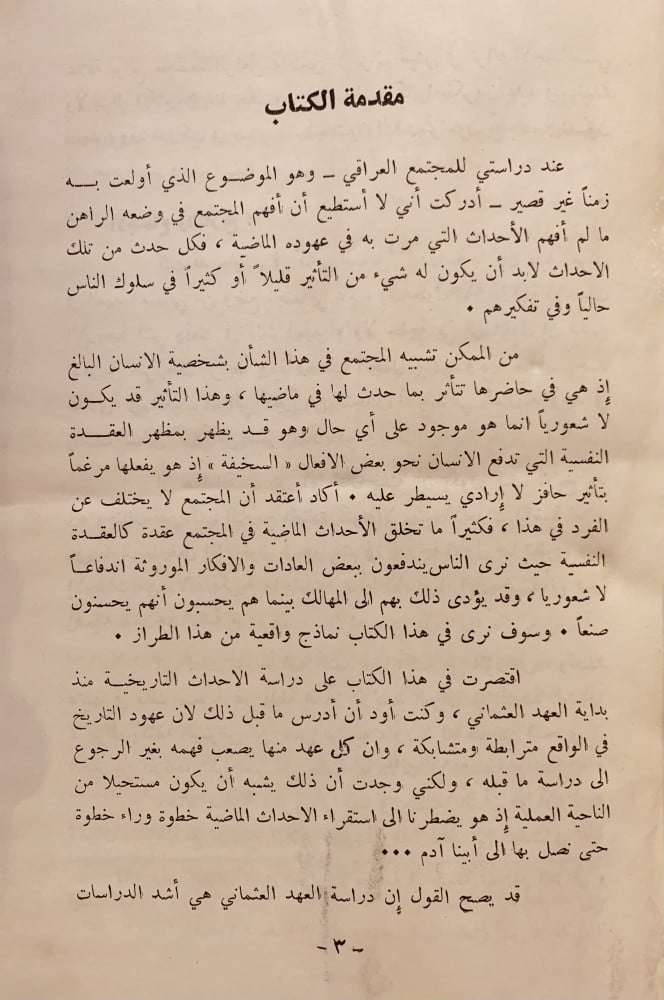 مقدمة الكتاب
عند دراستي للمجتمع العراقي ــ وهو الموضــوع الذي أولعت بــه
زمناً غير قصير ــ أدركت أني لا أستطيع أن أفهم المجتمع في وضعه الراهن
ما لم أفهم الأحداث التي مرت به في عهوده الماضية ، فكل حدث من تلك
الاحداث لابد أن يكون له شيء من التأثير قليلاً أو كثيراً في سلوك الناس
حالياً وفي تفكيرهم ٠
من الممكن تشبيه المجتمع في هذا الشأن بشخصية الانسان البالغ
إذ هي في حاضرها تتأثر بما حدث لها في ماضيها ، وهذا التأثير قد يكــون
لا شعورياً انما هو موجود على أي حال وهو قــد يظهر بمظهر العقــدة
النفسية التي تدفع الانسان نحو بعض الافعال « السخيفة » إذ هو يفعلها مرغماً
بتأثير حافز لا إرادي يسيطر عليه ٠ أكاد أعتقد أن المجتمع لا يختلف عن
الفرد في هذا ، فكثيراً ما تخلق الأحداث الماضية في المجتمع عقدة كالعقدة
النفسية حيث نرى الناس يندفعون ببعض العادات والافكار الموروثة اندفاعــاً
لا شعوريا ، وقد يؤدى ذلك بهم الى المهالك بينما هم يحسبون أنهم يحسنون
صنعاً ٠ وسوف نرى في هذا الكتاب نماذج واقعية من هذا الطراز ٠
اقتصرت في هذا الكتاب على دراسة الاحداث التاريخيــة منذ
بداية العهد العثماني ، وكنت أود أن أدرس ما قبل ذلك لان عهود التاريخ
في الواقع مترابطة ومتشابكة ، وان كل عهد منها يصعب فهمه بغير الرجوع
الى دراسة ما قبله ، ولكني وجدت أن ذلك يشبه أن يكون مستحيلا من
الناحية العملية إذ هو يضطرنا الى استقراء الاحداث الماضية خطوة وراء خطوة
حتى نصل بها الى أبينا آدم ٠٠٠
قد يصح القول إن دراسة العهد العثماني هي أشد الدراسات
ــ ٣ ــ